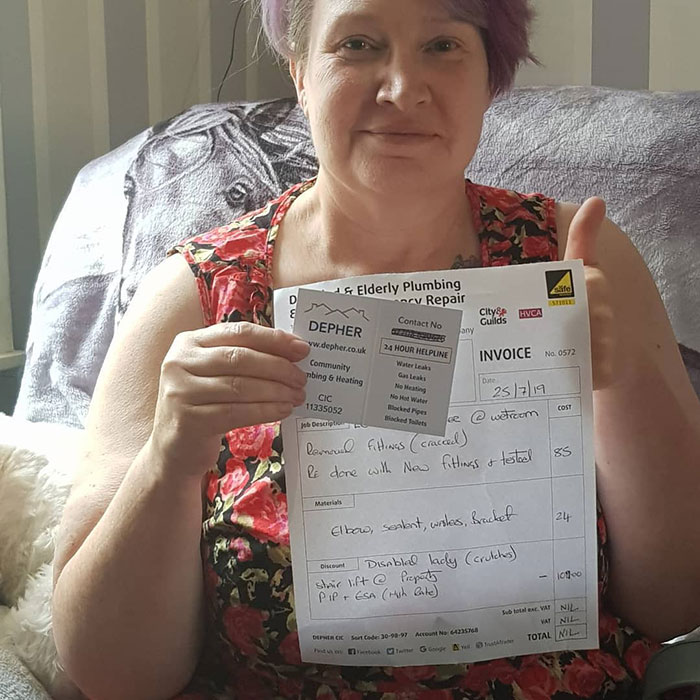 & Elderly Plumbing
Repair
Gas
safe
571611
City&
Guilds
HVCA
DEPHER
www.depher.co.uk
Community
mbing & Heating
CIC
11335052
Contact No
24 HOUR HELPLINE
Water Leaks
Gas Leaks
No Heating
No Hot Water
Blocked Pipes
Blocked Toilets
INVOICE No. 0572
Date
25/7/19
Job Descripti
COST
@ wetroom
Removal fittings (cracked)
Re done with New fittings & tested
85
Materials
Elbow, sealent, washers, Bracket
24
Discount Disabled lady (crutches)
stair lift @ Property
PIP + ESA (High Rate)
Sub total exc. VAT NIL
VAT NIL
TOTAL NIL
DEPHER CIC Sort Code: 30-98-97 Account No: 64235768
Find us on: Facebook Twitter Google Yell TrustATrader